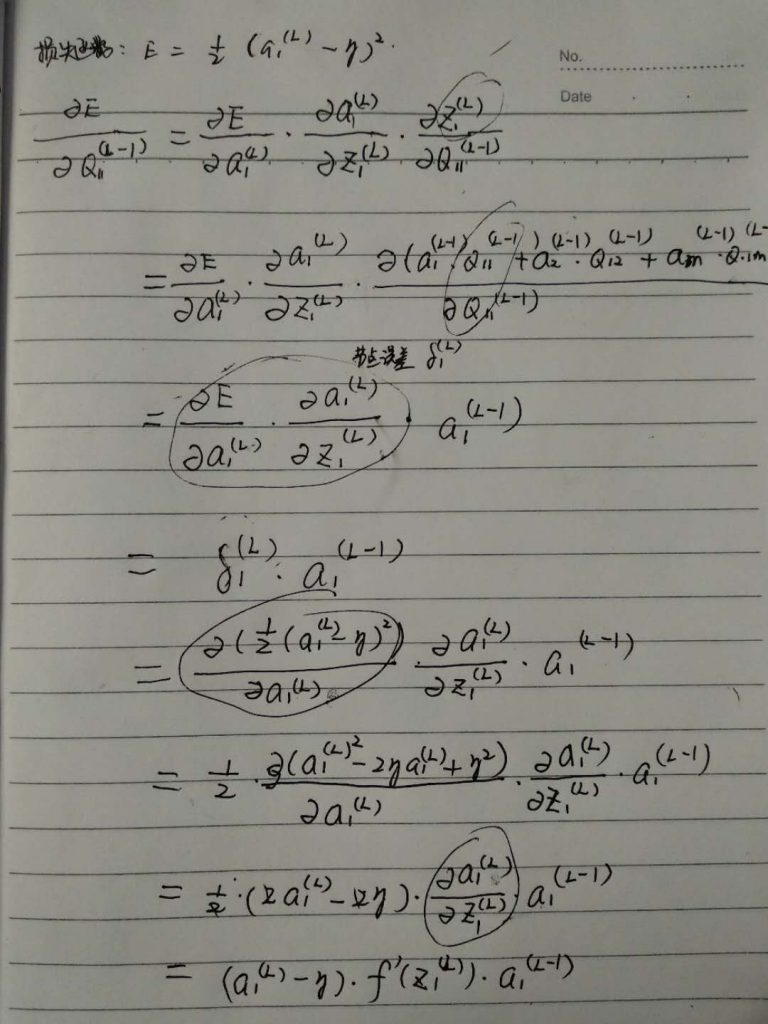 损失函数: E = ½ (a₁^(L) − y)².
No.
Date
∂E / ∂Q₁₁^(L-1) = ∂E / ∂a₁^(L) · ∂a₁^(L) / ∂Z₁^(L) · ∂Z₁^(L) / ∂Q₁₁^(L-1)
= ∂E / ∂a₁^(L) · ∂a₁^(L) / ∂Z₁^(L) · ∂(a₁^(L-1) · Q₁₁^(L-1) + a₂^(L-1) · Q₁₂^(L-1) + aₘ^(L-1) · Q₁ₘ^(L- / ∂Q₁₁^(L-1)
节点误差 δ₁^(L)
= ∂E / ∂a₁^(L) · ∂a₁^(L) / ∂Z₁^(L) · a₁^(L-1)
= δ₁^(L) · a₁^(L-1)
= ∂(½(a₁^(L) − y)²) / ∂a₁^(L) · ∂a₁^(L) / ∂Z₁^(L) · a₁^(L-1)
= ½ · ∂(a₁^(L)² − 2ya₁^(L) + y²) / ∂a₁^(L) · ∂a₁^(L) / ∂Z₁^(L) · a₁^(L-1)
= ½ · (2a₁^(L) − 2y) · ∂a₁^(L) / ∂Z₁^(L) · a₁^(L-1)
= (a₁^(L) − y) · f'(Z₁^(L)) · a₁^(L-1)